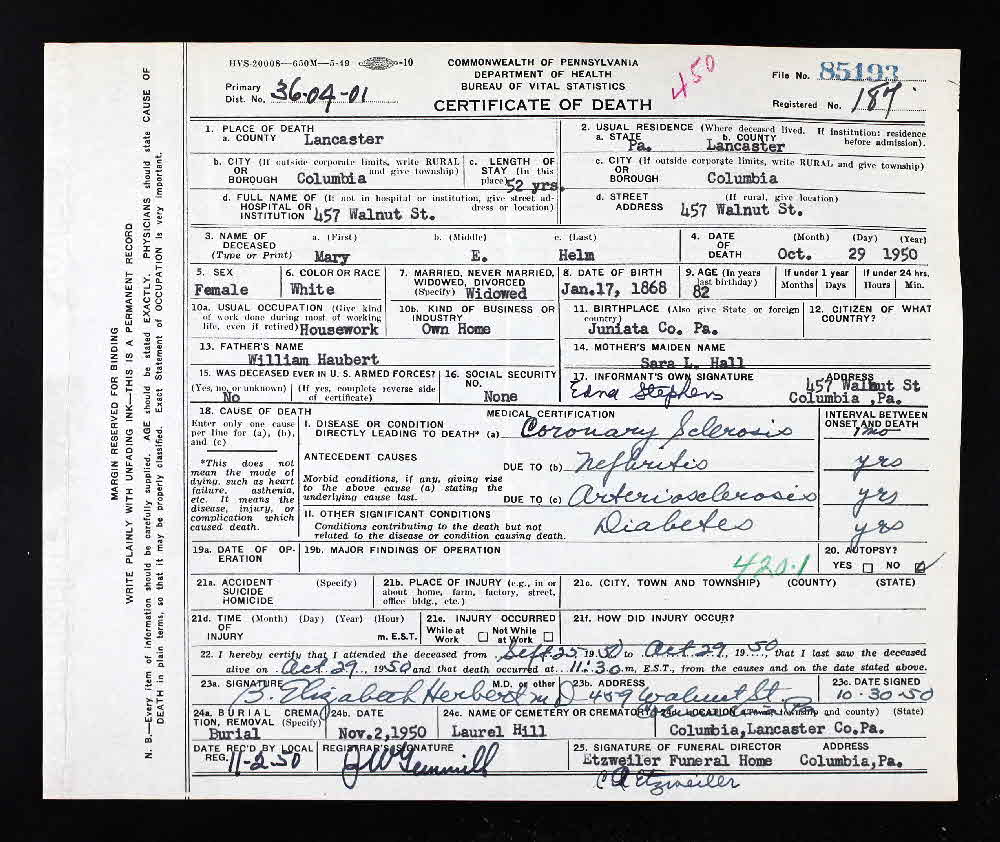 HVS-20008—650M—5-49 -10
COMMONWEALTH OF PENNSYLVANIA
DEPARTMENT OF HEALTH
BUREAU OF VITAL STATISTICS
CERTIFICATE OF DEATH
450
File No. 85193
Primary Dist. No. 36-04-01
Registered No. 187
MARGIN RESERVED FOR BINDING
WRITE PLAINLY WITH UNFADING INK—THIS IS A PERMANENT RECORD
N. B.—Every item of information should be carefully supplied. AGE should be stated EXACTLY. PHYSICIANS should state CAUSE OF
DEATH in plain terms, so that it may be properly classified. Exact Statement of OCCUPATION is very important.
1. PLACE OF DEATH
a. COUNTY Lancaster
2. USUAL RESIDENCE (Where deceased lived. If institution: residence before admission).
a. STATE Pa. b. COUNTY Lancaster
b. CITY (If outside corporate limits, write RURAL and give township) OR BOROUGH Columbia
c. LENGTH OF STAY (in this place) 52 yrs.
c. CITY (If outside corporate limits, write RURAL and give township) OR BOROUGH Columbia
d. FULL NAME OF (If not in hospital or institution, give street address or location) HOSPITAL OR INSTITUTION 457 Walnut St.
d. STREET ADDRESS (If rural, give location) 457 Walnut St.
3. NAME OF DECEASED (Type or Print) a. (First) Mary b. (Middle) E. c. (Last) Helm
4. DATE OF DEATH (Month) (Day) (Year) Oct. 29 1950
5. SEX Female
6. COLOR OR RACE White
7. MARRIED, NEVER MARRIED, WIDOWED, DIVORCED (Specify) Widowed
8. DATE OF BIRTH Jan.17, 1868
9. AGE (In years last birthday) 82
If under 1 year Months Days
If under 24 hrs. Hours Min.
10a. USUAL OCCUPATION (Give kind of work done during most of working life, even if retired) Housework
10b. KIND OF BUSINESS OR INDUSTRY Own Home
11. BIRTHPLACE (Also give State or foreign country) Juniata Co. Pa.
12. CITIZEN OF WHAT COUNTRY?
13. FATHER'S NAME William Haubert
14. MOTHER'S MAIDEN NAME Sara L. Hall
15. WAS DECEASED EVER IN U. S. ARMED FORCES? (Yes, no, or unknown) No (If yes, complete reverse side of certificate)
16. SOCIAL SECURITY NO. None
17. INFORMANT'S OWN SIGNATURE Edna Stephens
ADDRESS 457 Walnut St Columbia ,Pa.
18. CAUSE OF DEATH
Enter only one cause per line for (a), (b), and (c)
*This does not mean the mode of dying, such as heart failure, asthenia, etc. It means the disease, injury, or complication which caused death.
MEDICAL CERTIFICATION
INTERVAL BETWEEN ONSET AND DEATH
I. DISEASE OR CONDITION DIRECTLY LEADING TO DEATH* (a) Coronary Sclerosis 1 mo
ANTECEDENT CAUSES
Morbid conditions, if any, giving rise to the above cause (a) stating the underlying cause last.
DUE TO (b) Nephritis yrs
DUE TO (c) Arteriosclerosis yrs
II. OTHER SIGNIFICANT CONDITIONS
Conditions contributing to the death but not related to the disease or condition causing death.
Diabetes yrs
19a. DATE OF OPERATION
19b. MAJOR FINDINGS OF OPERATION
420.1
20. AUTOPSY? YES NO
21a. ACCIDENT SUICIDE HOMICIDE (Specify)
21b. PLACE OF INJURY (e.g., in or about home, farm, factory, street, office bldg., etc.)
21c. (CITY, TOWN AND TOWNSHIP) (COUNTY) (STATE)
21d. TIME OF INJURY (Month) (Day) (Year) (Hour) m. E.S.T.
21e. INJURY OCCURRED While at Work Not While at Work
21f. HOW DID INJURY OCCUR?
22. I hereby certify that I attended the deceased from Sept. 25 1950 to Oct. 29, 1950, that I last saw the deceased
alive on Oct. 29, 1950 and that death occurred at 11:30 m, E.S.T., from the causes and on the date stated above.
23a. SIGNATURE M.D. or other B. Elizabeth Herbert M D
23b. ADDRESS 459 Walnut St.
23c. DATE SIGNED 10-30-50
24a. BURIAL CREMATION, REMOVAL (Specify) Burial
24b. DATE Nov.2,1950
24c. NAME OF CEMETERY OR CREMATORY Laurel Hill
24d. LOCATION (Town, township and county) (State) Columbia,Lancaster Co,Pa.
DATE REC'D BY LOCAL REG. 11-2-50
REGISTRAR'S SIGNATURE
25. SIGNATURE OF FUNERAL DIRECTOR ADDRESS
Etzweiler Funeral Home Columbia,Pa.
Etzweiler